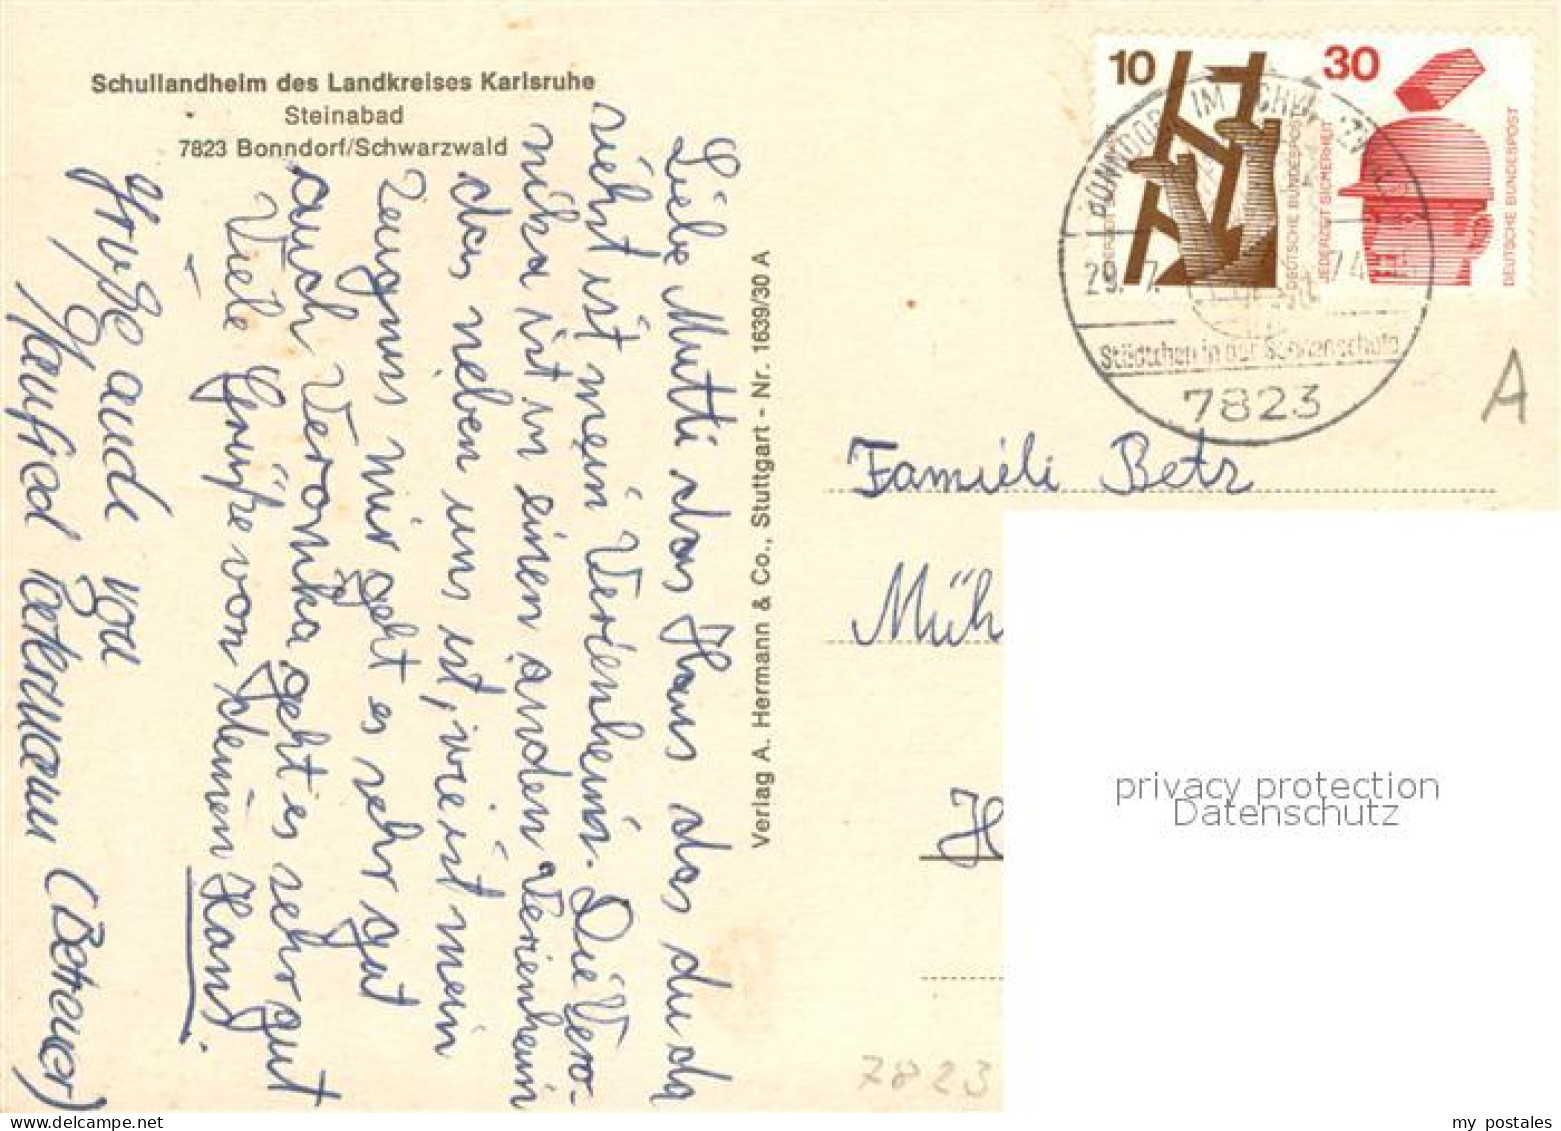 Schullandheim des Landkreises Karlsruhe
Steinabad
7823 Bonndorf/Schwarzwald
Liebe Mutti das Haus das du da
siehst ist mein Verienheim. Die Vero-
nika ist in einen anden Verienheim
das neben uns ist, wie ist mein
Zeugnus mir geht es sehr gut
auch Veronika geht es sehr gut
Viele Grüße von deinen Hans.
Grüße auch von
Manfred (Betreuer)
Verlag A. Hermann & Co., Stuttgart - Nr. 1639/30 A
10
DEUTSCHE BUNDESPOST
30
JEDERZEIT SICHERHEIT
DEUTSCHE BUNDESPOST
BONNDORF IM
29. 7. 74
Städtchen in der
7823
A
Famieli Betz
Müh
H
privacy protection
Datenschutz
7823
my postales